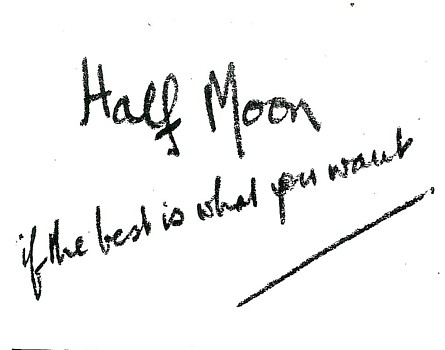 Half Moon
if the best is what you want